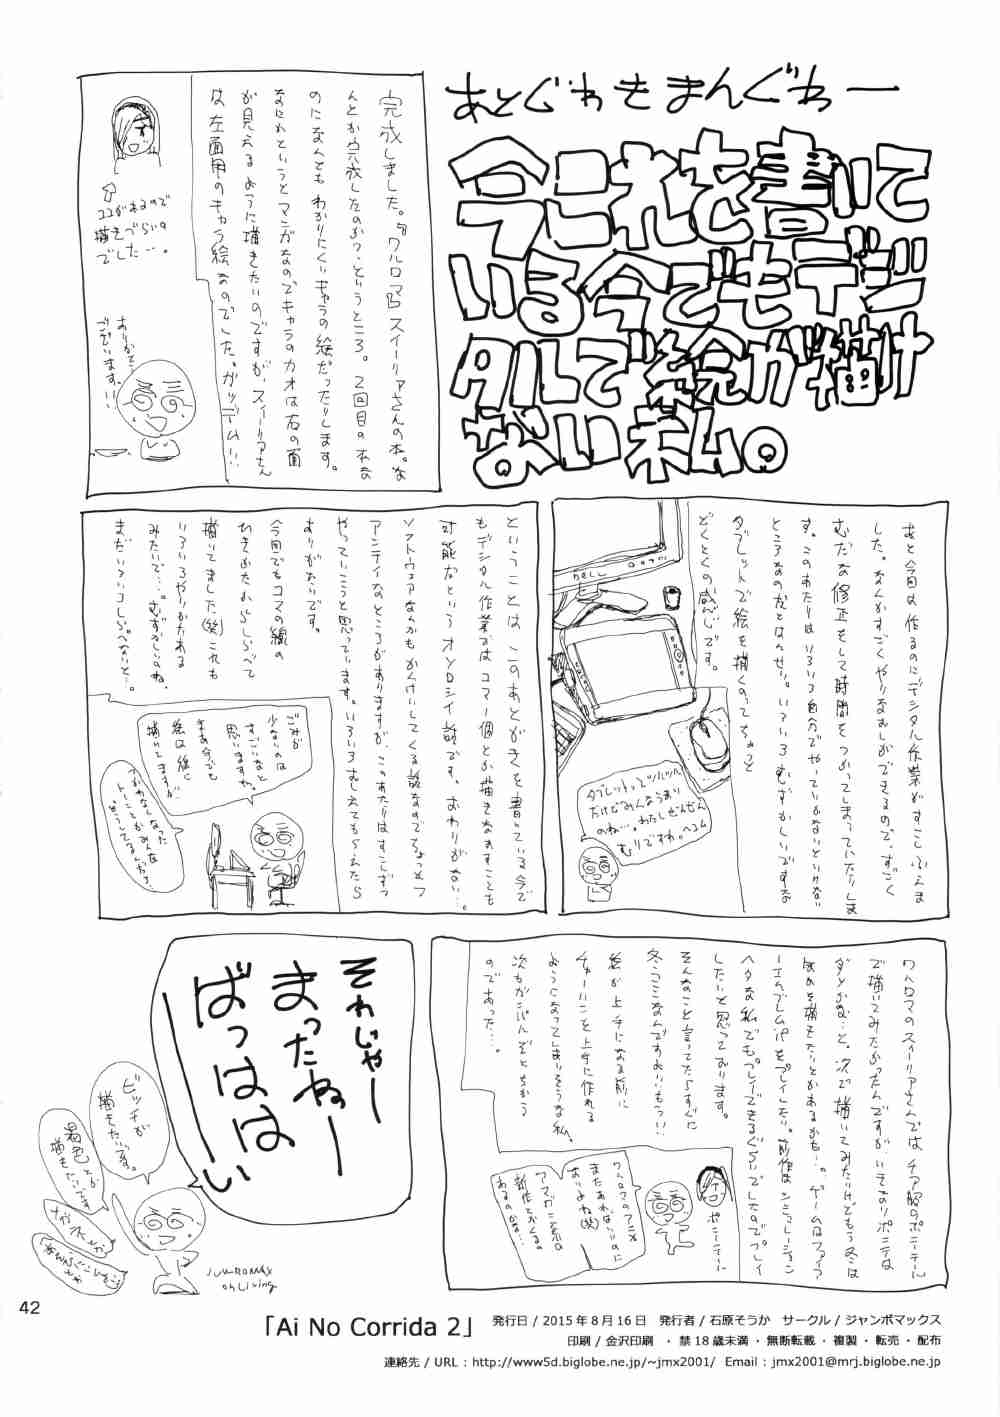 あとがきまんがー
今これを書いて
いる今でもデジ
タルで絵が描け
ない私。
完成しました。ワルロマBスイーリアさんの本。な
んとか完成したのか?というところ。2回目の本な
のになんともわかりにくいキャラの絵だったりします。
なにれというとマンガなのでキャラのカオは右の面
が見えるように描きたいのですが、スイーリアさん
は左面用のキャラ絵なのでした。ガッデム!!
ココがあるので
描きづらいの
でした…。
ありがとう
ございます!!
あと今回は作るのにデジタル作業がすこしふえま
した。なんかすごくやりなおしができるので、すごく
むだな修正をして時間をつかってしまっていたりしま
す。このあたりはいろいろ自分でやっていかないといけない
ところなのだとはんせい。いろいろむずかしいですな
タブレットで絵を描くのってちょっと
どくとくの感じです。
DELL
タブレットってツルツル
だけどみんなうまい
のね…。わたしぜんぜん
むりですわ。ヘコム
ということは、このあとがきを書いている今で
もデジタル作業ではコマ一個とか描きなおすことも
可能なというオソロシイ話です。おわりがない…。
ソフトウェアなんかもかんけいしてくる話なのでちょっとフ
アンテイなところがありますが、このあたりはすこしずつ
やっていこうと思っています。いろいろおしえてもらえたら
ありがたいです。
今回でもコマの線の
ひきかたからしらべて
描いてました(笑)これも
いろいろやりかたある
みたいで…。むずかしいのね。
まだいろいろしらべないと…。
ごみが
少ないのは
すごいなと
思いますね。
まあ今でも
絵は紙に
描いてますが
つかわなくなった
トーンとかみんな
どうしてるんだろう
ワルロマのスイーリアさんではチア服のポニーテール
で描いてみたかったんですが、いそのリポニテは
ダメかな…と、次で描いてみたいけどもう冬は
なにかを描きたいとかあるかも…。ゲームはファイア
ーエムブレムifをプレイしたい。前作はシミュレーション
ヘタな私でもプレイできるぐらいでしたのでプレイ
したいと思っております。
そんなこと言ってたらすぐに
冬コミなんですよ!!もう!!
絵が上手になる前に
チャーハンを上手に作れる
ようになってしまいそうな私。
次もがんばんぞとちかう
のであった…。
ポニーテール
ワルロマのアニメ
またあればいいのに
おもしろいね(笑)
それじゃー
まったねー
ばっはは
ーい
ビッチが
描きたいです。
褐色とか
描きたいです
JUMBOMAX
oh Living
42
「Ai No Corrida 2」
発行日 / 2015年8月16日　発行者 / 石原そうか　サークル / ジャンボマックス
印刷 / 金沢印刷　・禁18歳未満・無断転載・複製・転売・配布
連絡先 / URL : http://www5d.biglobe.ne.jp/~jmx2001/　Email : jmx2001@mrj.biglobe.ne.jp